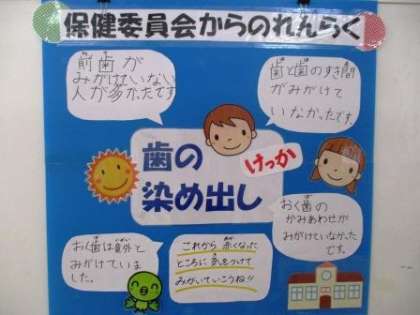 保健委員会からのれんらく
前歯が
みがけていない
人が多かったです
歯と歯のすき間
がみがけて
いなかったです。
歯の
染め出し
けっか
おく歯の
かみあわせが
みがけていなかった
です。
おく歯は意外と
みがけていま
した。
これから 赤くなった
ところに気をつけて
みがいていこうね!!